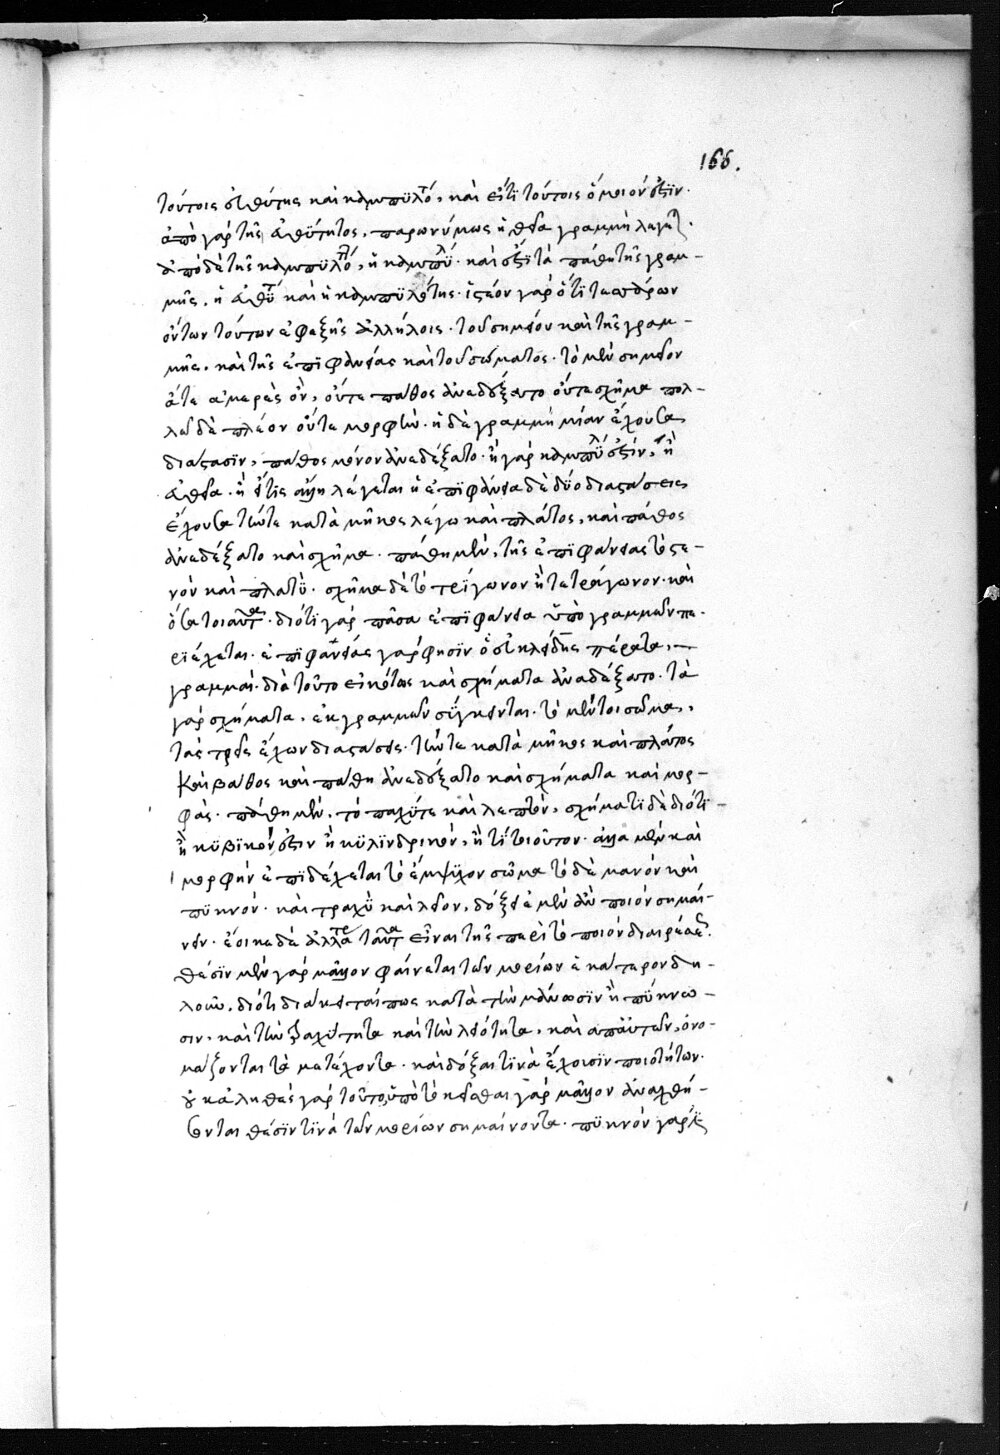 166.
τούτοις εὐθύτης καὶ καμπυλότης, καὶ εἴ τι τούτοις ὅμοιόν ἐστιν.
ἀπὸ γὰρ τῆς εὐθύτητος, παρωνύμως ἡ εὐθεῖα γραμμὴ λέγεται.
ἀπὸ δὲ τῆς καμπυλότητος, ἡ καμπύλη. καὶ ἔστι τὰ πάθη τῆς γραμ-
μῆς, ἡ εὐθύτης καὶ ἡ καμπυλότης. ἰστέον γὰρ ὅτι τεσσάρων
ὄντων τούτων ἐφεξῆς ἀλλήλοις. τοῦ σημείου καὶ τῆς γραμ-
μῆς. καὶ τῆς ἐπιφανείας καὶ τοῦ σώματος. τὸ μὲν σημεῖον
ἅτε ἀμερὲς ὂν, οὔτε πάθος ἀνεδέξατο οὔτε σχῆμα πολ-
λῷ δὲ πλέον οὔτε μορφήν. ἡ δὲ γραμμὴ μίαν ἔχουσα
διάστασιν, πάθος μόνον ἀνεδέξατο. ἢ γὰρ καμπύλη ἐστὶν, ἢ
εὐθεῖα. λέγεται ἡ ἐπιφάνεια δὲ δύο διαστάσεις
ἔχουσα τήν τε κατὰ μῆκος λέγω καὶ πλάτος, καὶ πάθος
ἀνεδέξατο καὶ σχῆμα. πάθη μὲν, τῆς ἐπιφανείας τὸ στε-
νὸν καὶ πλατύ. σχῆμα δὲ τὸ τρίγωνον ἢ τετράγωνον. καὶ
ὅσα τοιαῦτα. διότι γὰρ πᾶσα ἐπιφάνεια ὑπὸ γραμμῶν πε-
ριέχεται. ἐπιφανείας γάρ φησιν ὁ εὐκλείδης πέρατα,
γραμμαί. διὰ τοῦτο εἰκότως καὶ σχήματα ἀνεδέξατο. τὰ
γὰρ σχήματα, ἐκ γραμμῶν σύγκειται. τὸ μέντοι σῶμα,
τὰς τρεῖς ἔχων διαστάσεις. τήν τε κατὰ μῆκος καὶ πλάτος
καὶ βάθος καὶ πάθη ἀνεδέξατο καὶ σχήματα καὶ μορ-
φάς. πάθη μὲν, τὸ παχύτε καὶ λεπτόν, σχήματι δὲ διότι
ἢ κυβικόν ἐστιν ἢ κυλινδρικόν, ἤ τι τοιοῦτον. ἀλλὰ μὲν καὶ
μορφὴν ἐπιδέχεται τὸ ἔμψυχον σῶμα τὸ δὲ μανὸν καὶ
πυκνόν. καὶ τραχὺ καὶ λεῖον, δόξειε μὲν ἂν ποιὸν σημαί-
νειν. ἔοικε δὲ ἀλλότρια ταῦτα εἶναι τῆς περὶ τὸ ποιὸν διαιρέσεως.
θέσιν μὲν γὰρ μᾶλλον φαίνεται τῶν μορίων ἑκάτερον δη-
λοῦν, διότι διάκειταί πως κατὰ τὴν μάνωσιν ἢ πύκνω-
σιν, καὶ τὴν τραχύτητα καὶ τὴν λειότητα, καὶ ἀπ' αὐτῶν, ὀνο-
μάζονται τὰ μετέχοντα. καὶ δόξαι τινὰ ἔχοισιν ποιοτήτων.
οὐκ ἀληθὲς γὰρ τοῦτο, ὑπὸ τὸ κεῖσθαι γὰρ μᾶλλον ἀναχθή-
σονται θέσιν τινὰ τῶν μορίων σημαίνοντα. πυκνὸν γάρ ἐστι